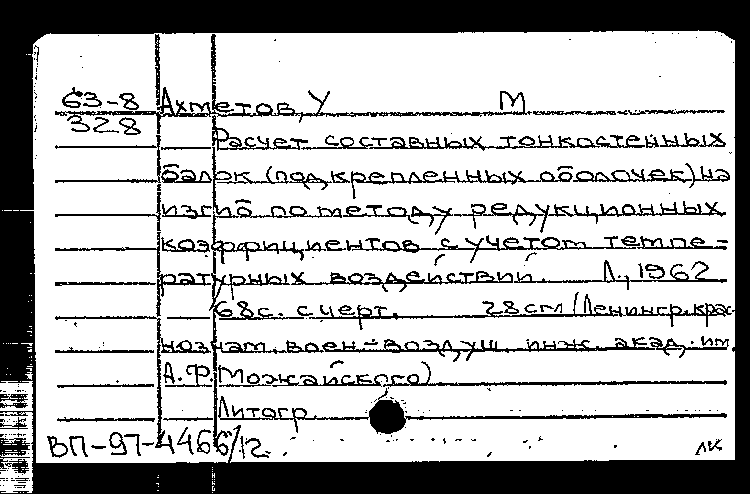 63-8 Ахметов, У М
328
Расчет составных тонкостенных
балок (подкрепленных оболочек) на
изгиб по методу редукционных
коэффициентов с учетом темпе=
ратурных воздействий. Л., 1962
68с. с черт. 28см (Ленингр. крас
нознам. воен=воздуш. инж. акад. им.
А.Ф. Можайского)
Литогр.
ВП-97-4466/12
ЛК